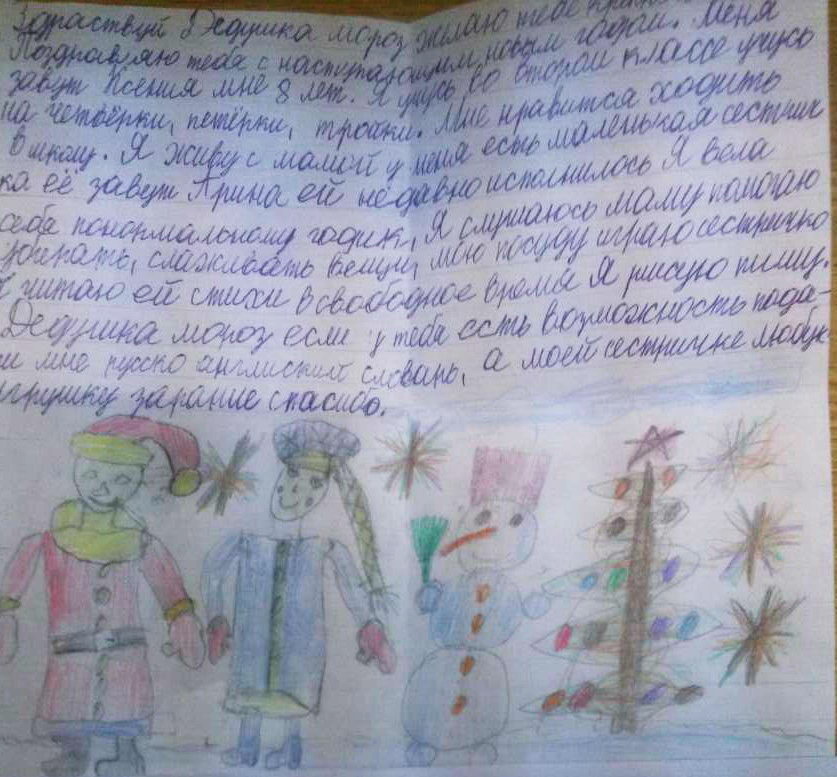 Здраствуй Дедушка мороз желаю тебе
Поздравляю тебя с наступающим, новым годом. Меня
завут Ксения мне 8 лет. Я учусь во втором классе учусь
на четвёрки, петёрки, тройки. Мне нравится ходить
в школу. Я живу с мамой у меня есть маленькая сестрич
ка её завут Арина ей недавно исполнилось Я вела
себя понормальному годик, Я слушаюсь маму помогаю
убирать, слаживать вещи, мою посуду играю сестричко
читаю ей стихи в свободное время Я рисую пишу.
Дедушка мороз если у тебя есть возможность пода-
ри мне русско англиский словарь, а моей сестричке любую
игрушку зарание спасибо.